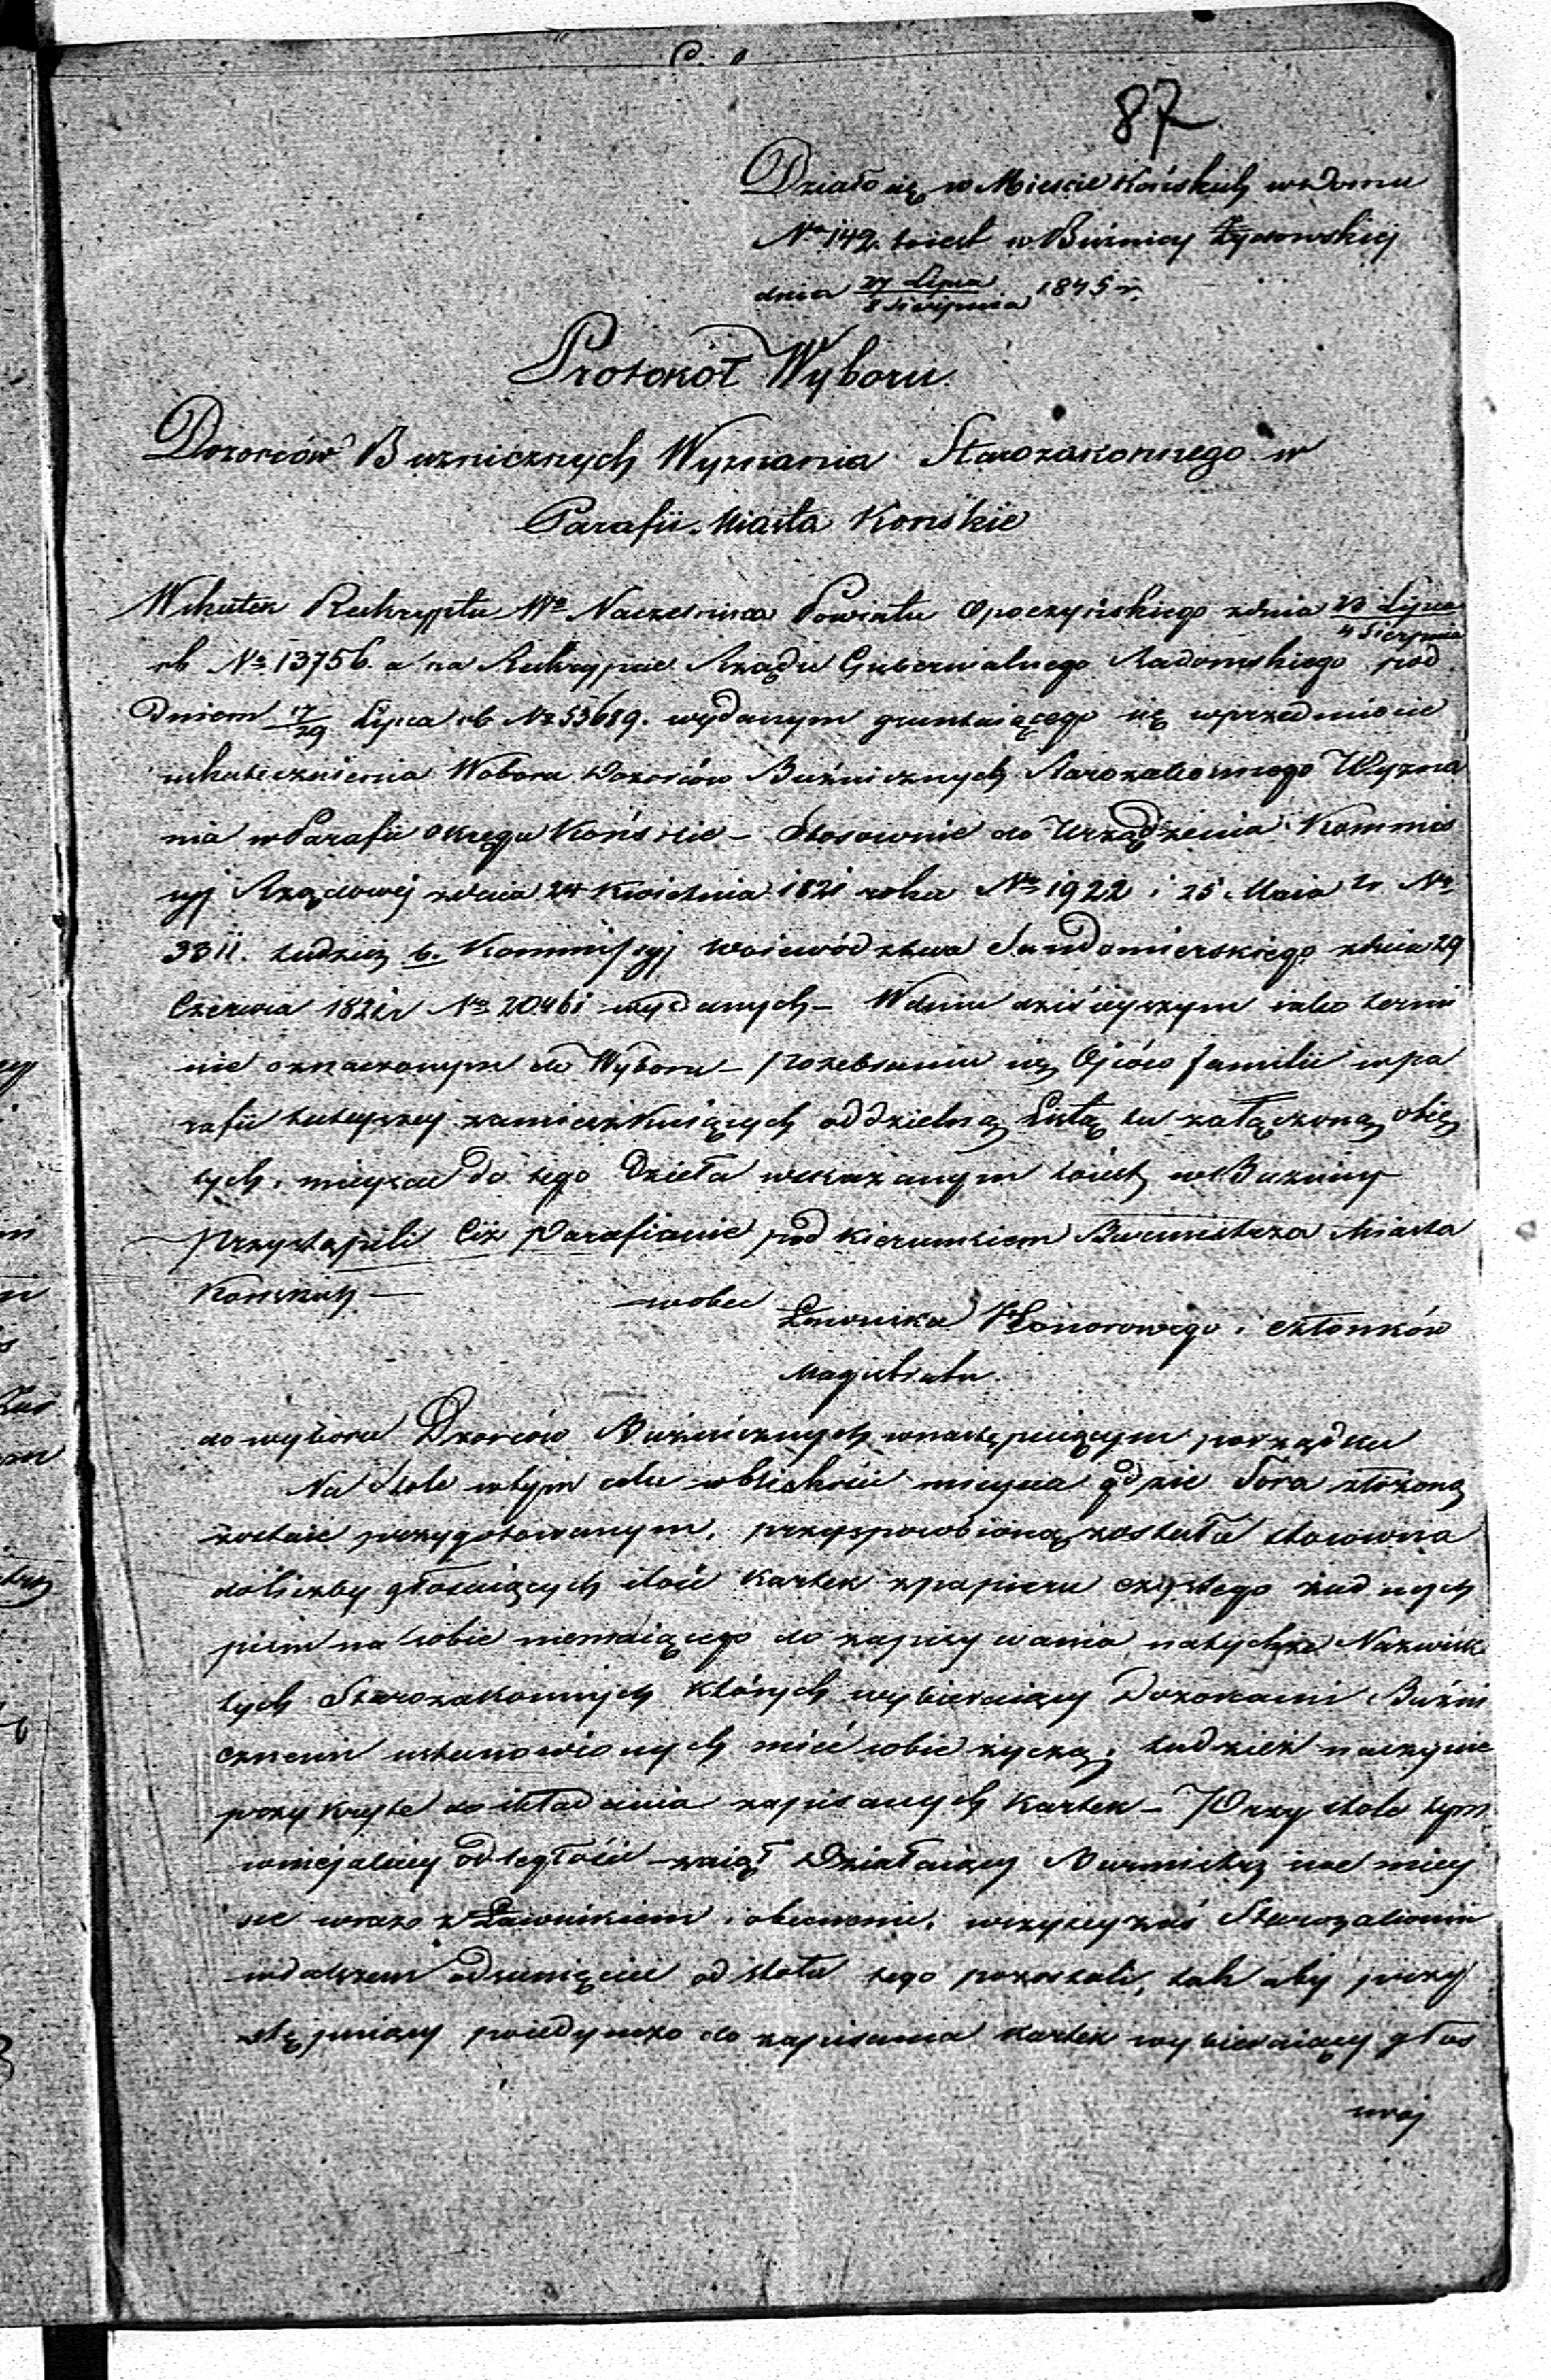 87
Działo się w Mieście Końskich w Domu
No 142. to iest w Bużnicy Żydowskiej
dnia 27 Lipca / 8 Sierpnia 1845 r.
Protokół Wyboru
Dozorców Buznicznych Wyznania Starozakonnego w
Parafii Miasta Końskie
Wskutek Reskryptu Wo Naczelnika Powiatu Opoczyńskiego z dnia 23 Lipca / 4 Sierpnia
rb No 13756. a na Reskrypcie Rządu Gubernialnego Radomskiego pod
Dniem 17/29 Lipca rb No 53689. wydanym gruntuiącego się w przedmiocie
uskutecznienia Wyboru Dozorców Buźnicznych Starozakonnego Wyzna
nia w Parafii Okręgu Końskie – Stosownie do Urządzenia Kommis
syj Rządowej z dnia 24 Kwietnia 1821 roku No 1922 i 25 Maia tr No
3311. tudzież b. Kommissyj Woiewództwa Sandomierskiego z dnia 29
Czerwca 1821 r No 20461 wydanych – W dniu dzisieyszym iako termi
nie oznaczonym do Wyboru – po zebraniu się Ojców familii w pa
rafii tuteyszey zamieszkuiących oddzielną Listą tu załączoną obię
tych, mieyscu do tego Dzieła wskazanym to iest w Buznicy
przystąpili Ciż Parafianie pod kierunkiem Burmistrza Miasta
Konskich –
wobec
Ławnika Honorowego i członków
Magistratu.
do wyboru Dzorców Buźnicznych w następuiącym porządku
Na Stole w tym celu w bliskości mieysca gdzie Tora złożoną
zostaie przygotowanym, przysposobioną została stosowna
do liczby głosuiących ilość kartek z papieru czystego żadnych
pism na sobie niemaiącego do zapisywania na tychże Nazwisk
tych Starozakonnych których wybieraiący Dozorcami Buźni
cznemi ustanowionych mieć sobie życzą, tudzież naczynie
przykryte do składania zapisanych kartek – Przy stole tym
w niejakiey odległości zaiął Działaiący Burmistrz swe miey
sce wraz z Ławnikiem i obecnemi, wszyscy zaś Starozakonni
w dalszem odsunięciu od stołu tego pozostali, tak aby przy
stępuiący poiedynczo do zapisania kartek wybieraiący głos
swój